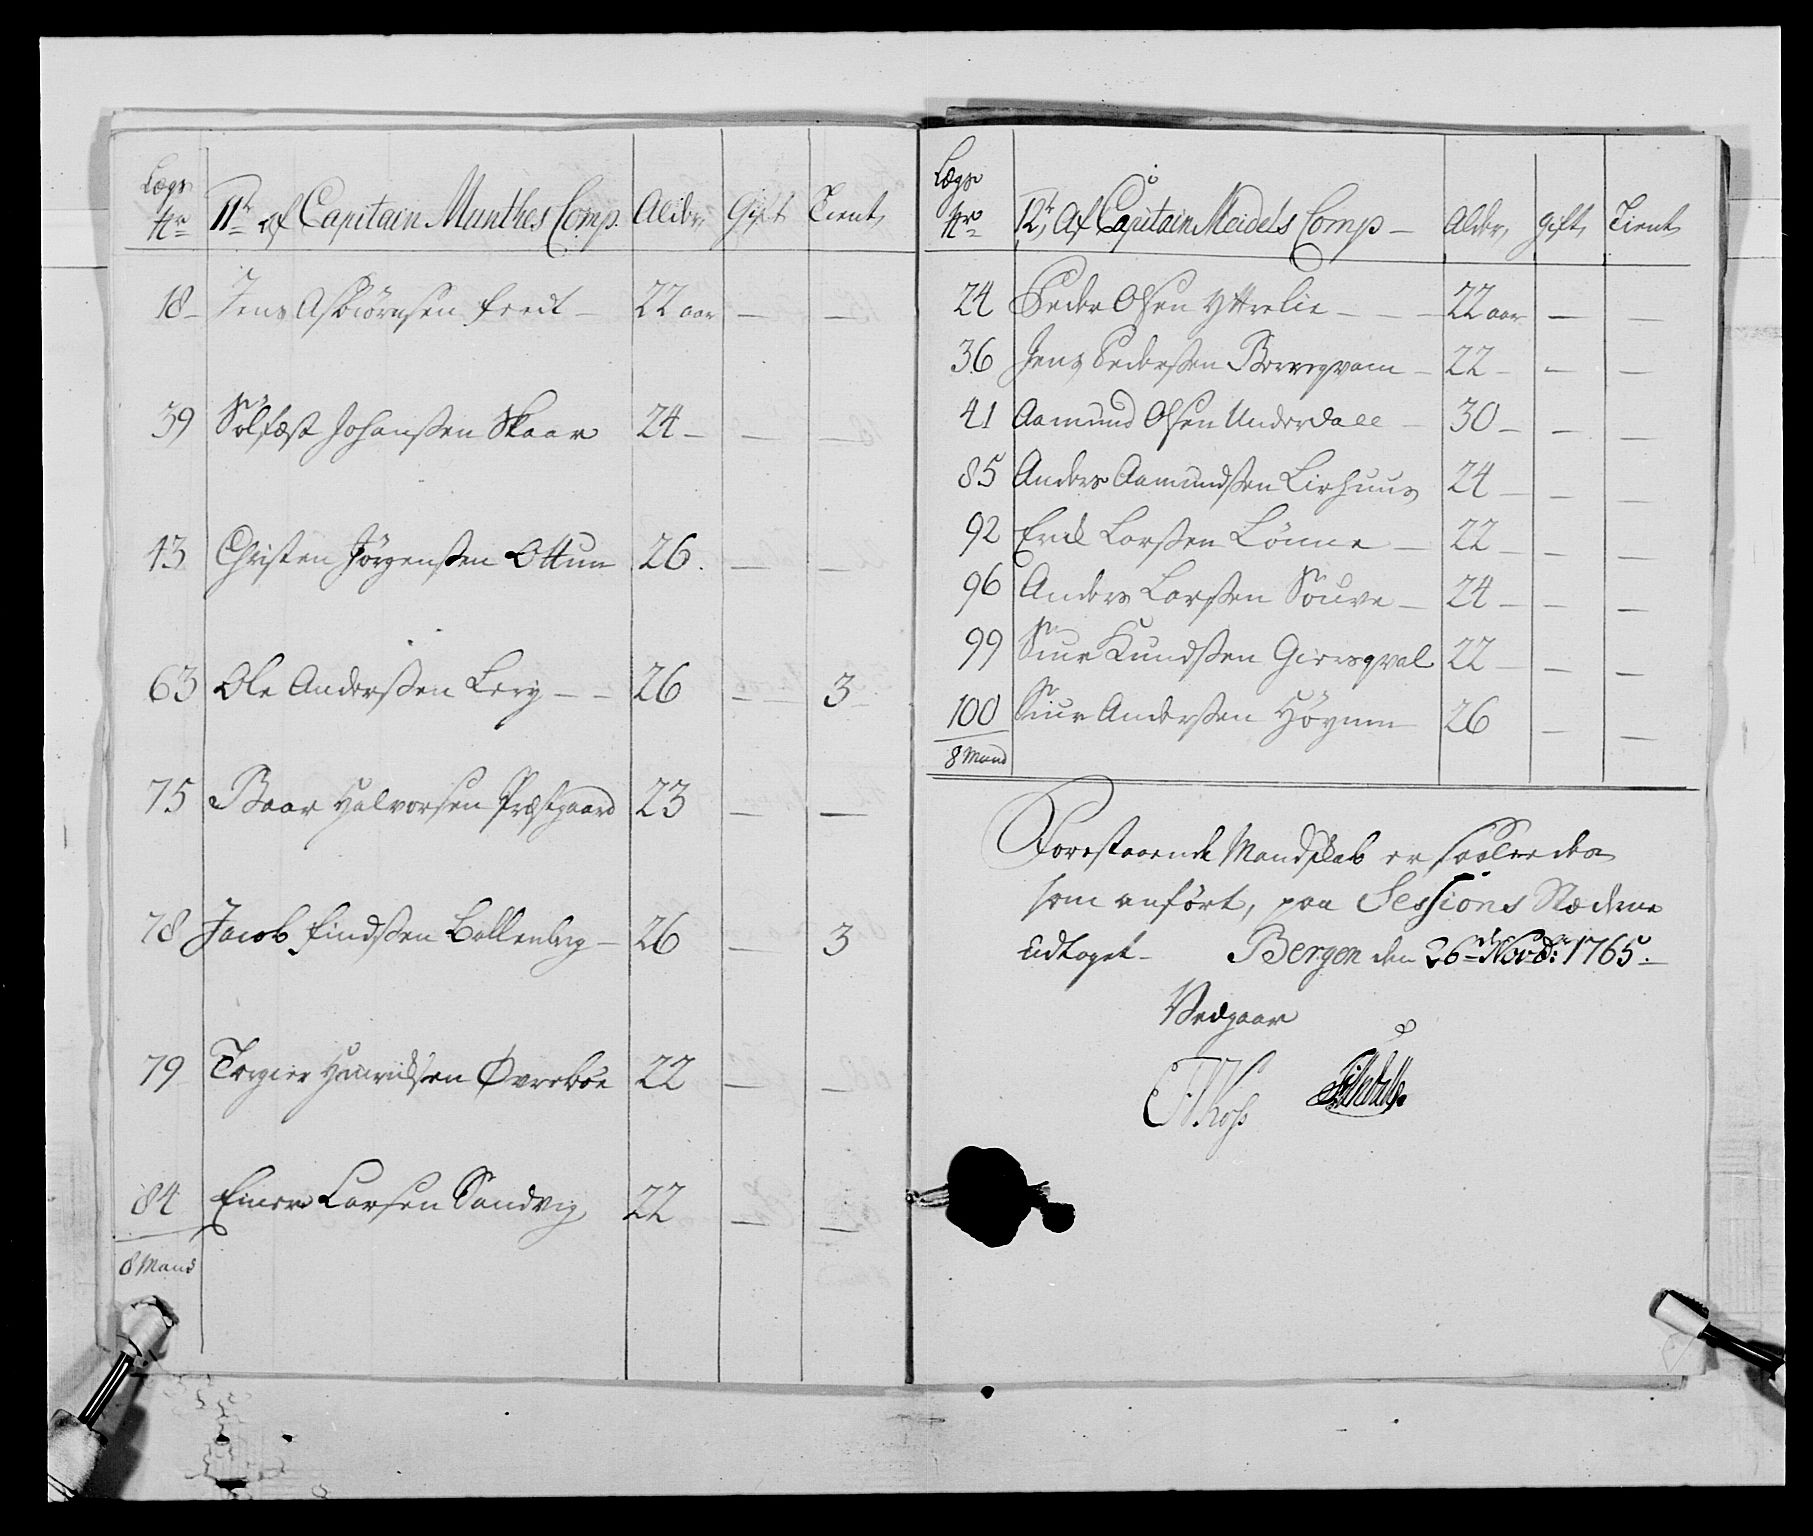 Lægs
Nr
11te af Capitain Munthes Comp.
Alder,
Gift
Tient,
18 – Jens Asbiörnsen Eedt – 22 aar – –
39 Sölfæst Johanssen Skaar 24 – – –
43 Christen Jörgenssen Ottun 26. – –
63 Ole Anderssen Berg – – 26 – 3
75 Baar Halvorsen Præstgaard 23 – –
78 Jacob Eindssen Bollenberg – 26 – 3
79 Torgier Henrichsen Øvreböe 22 – –
84 Einer Larsen Sandvig 22 – –
8 Mand
Lægs
Nro
12te, Af Capitain Meidels Comp –
Alder,
Gift,
Tient,
24 Peder Olsen Yttrelie – – – 22 aar – –
36 Jens Pederssen Borreqvam – 22 – – –
41 Aamund Olsen Underdall – 30 – – –
85 Anders Aamundssen Lirhuus 24 – – –
92 Erik Larssen Lönne – 22 – – –
96 Anders Larssen Souve – 24 – – –
99 Siur Knudssen Giersqval 22 – – –
100 Siur Anderssen Höynen 26 – –
8 Mand
Forestaaende Mandskab er saaledes
som anfört, paa Sessions Stæderne
Udtaget – Bergen den 26de Novbr: 1765. –
Vedgaar